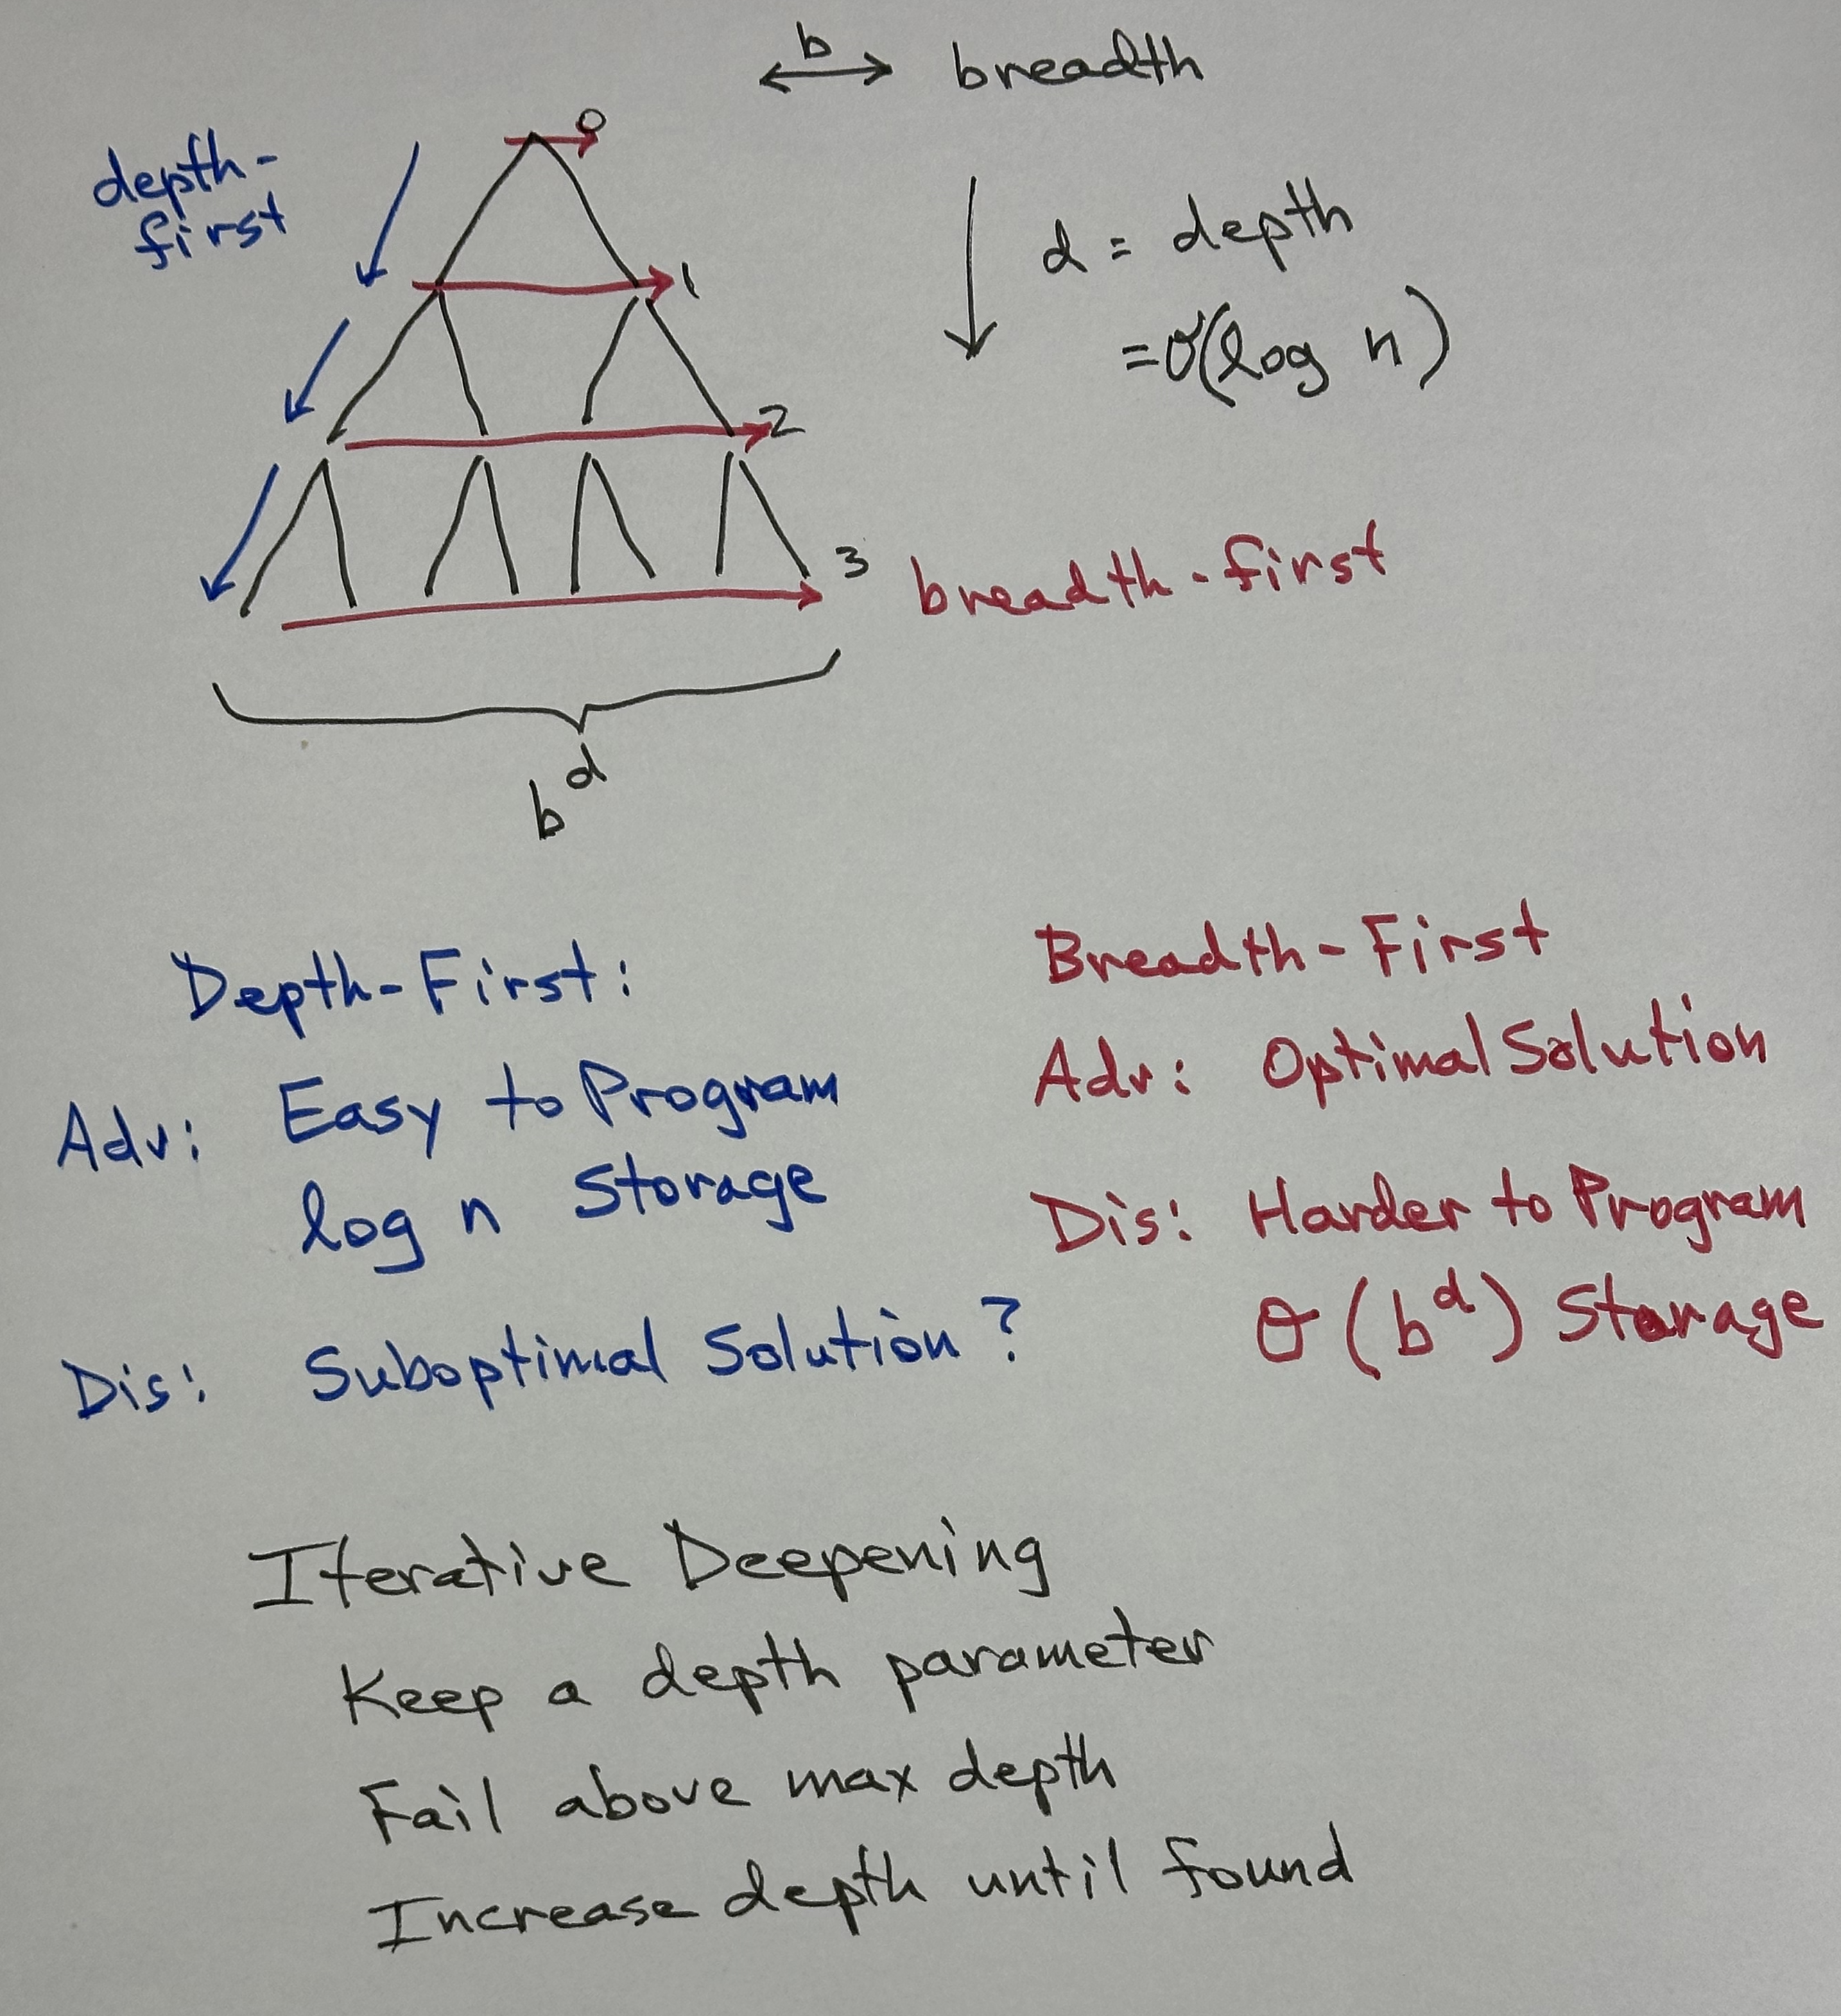 b
breadth
depth-
first
0
1
2
3
d = depth
= O(log n)
breadth-first
b^d
Depth-First:
Adv: Easy to Program
log n Storage
Dis: Suboptimal Solution?
Breadth-First
Adv: Optimal Solution
Dis: Harder to Program
O(b^d) Storage
Iterative Deepening
Keep a depth parameter
Fail above max depth
Increase depth until found